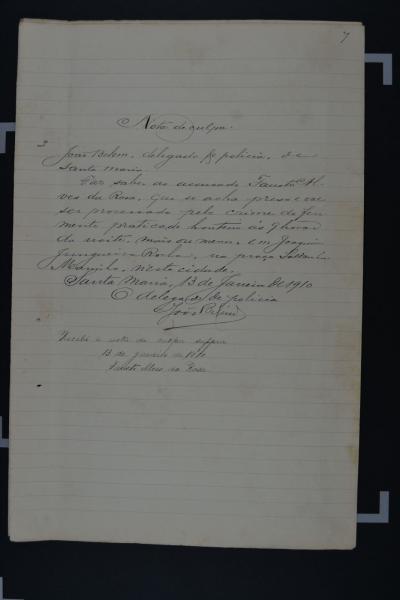 7
Nota de culpa.
João Belem, delegado de policia, de
Santa Maria
Faz saber ao accusado Fausto Al-
ves da Rosa, que se acha preso e vae
ser processado pelo crime de feri-
mento praticado hontem ás 9 horas
da noite, mais ou menos, em Joaquim
Junqueira Rocha, na praça Saldanha
Marinho, nesta cidade.
Santa Maria, 13 de Janeiro de 1910
O delegado de policia
João Belem
Recebi a nota de culpa
13 de janeiro de 1910
Fausto Alves da Rosa